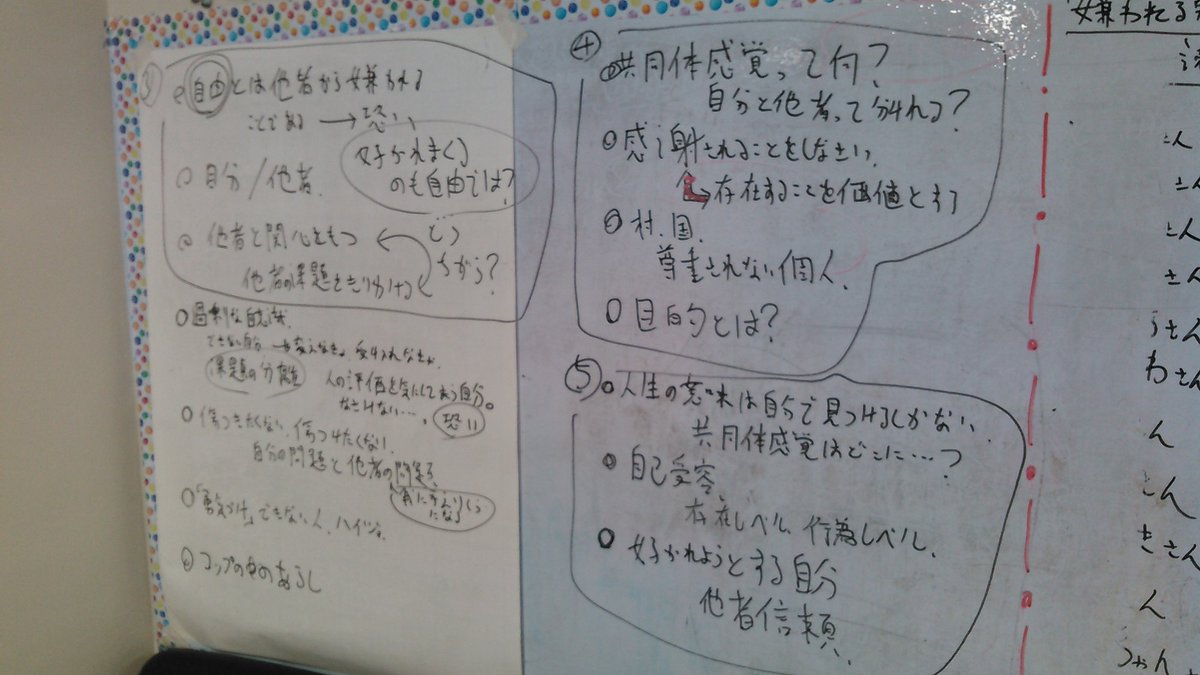 ③
自由とは他者から嫌われる
ことである → 恐い
好かれまくる
のも自由では?
自分/他者.
他者と関心をもつ
どう
ちがう?
他者の課題をきりわける
過剰な自意識.
できない自分
受け入れなきゃ.
課題の分離
人の評価を気にしてしまう自分。
なさけない….
恐い
傷つきたくない. 傷つけたくない.
自分の問題と他者の問題
「勇気づけ」できない人.
コップの中のあらし
④
共同体感覚って何?
自分と他者って分れる?
感謝されることをしなさい.
存在することを価値とする
村.国.
尊重されない個人.
目的とは?
⑤
人生の意味は自分で見つけるしかない.
共同体感覚はどこに…?
自己受容.
存在レベル. 行為レベル.
好かれようとする自分
他者信頼.
嫌われる
さん
さん
さん
さん
うさん
わさん
ん
さん
きさん
ん
つゃん